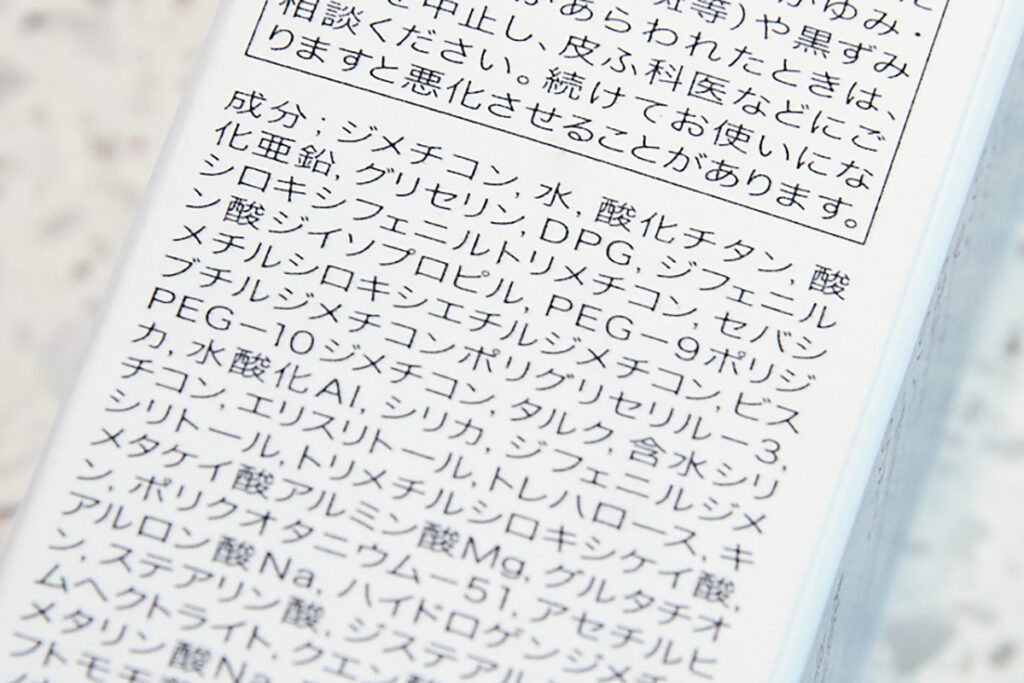 かゆみ・
斑等)や黒ずみ
があらわれたときは、
を中止し、皮ふ科医などにご
相談ください。続けてお使いにな
りますと悪化させることがあります。
成分;ジメチコン, 水, 酸化チタン, 酸
化亜鉛, グリセリン, DPG, ジフェニル
シロキシフェニルトリメチコン, セバシ
ン酸ジイソプロピル, PEG−9ポリジ
メチルシロキシエチルジメチコン, ビス
ブチルジメチコンポリグリセリル−3,
PEG−10ジメチコン, タルク, 含水シリ
カ, 水酸化Al, シリカ, ジフェニルジメ
チコン, エリスリトール, トレハロース, キ
シリトール, トリメチルシロキシケイ酸,
メタケイ酸アルミン酸Mg, グルタチオ
ン, ポリクオタニウム−51, アセチルヒ
アルロン酸Na, ハイドロゲンジメチ
ン, ステアリン酸, ジステアル
ムヘクトライト, クエン酸
メタリン酸Na
フトモモ